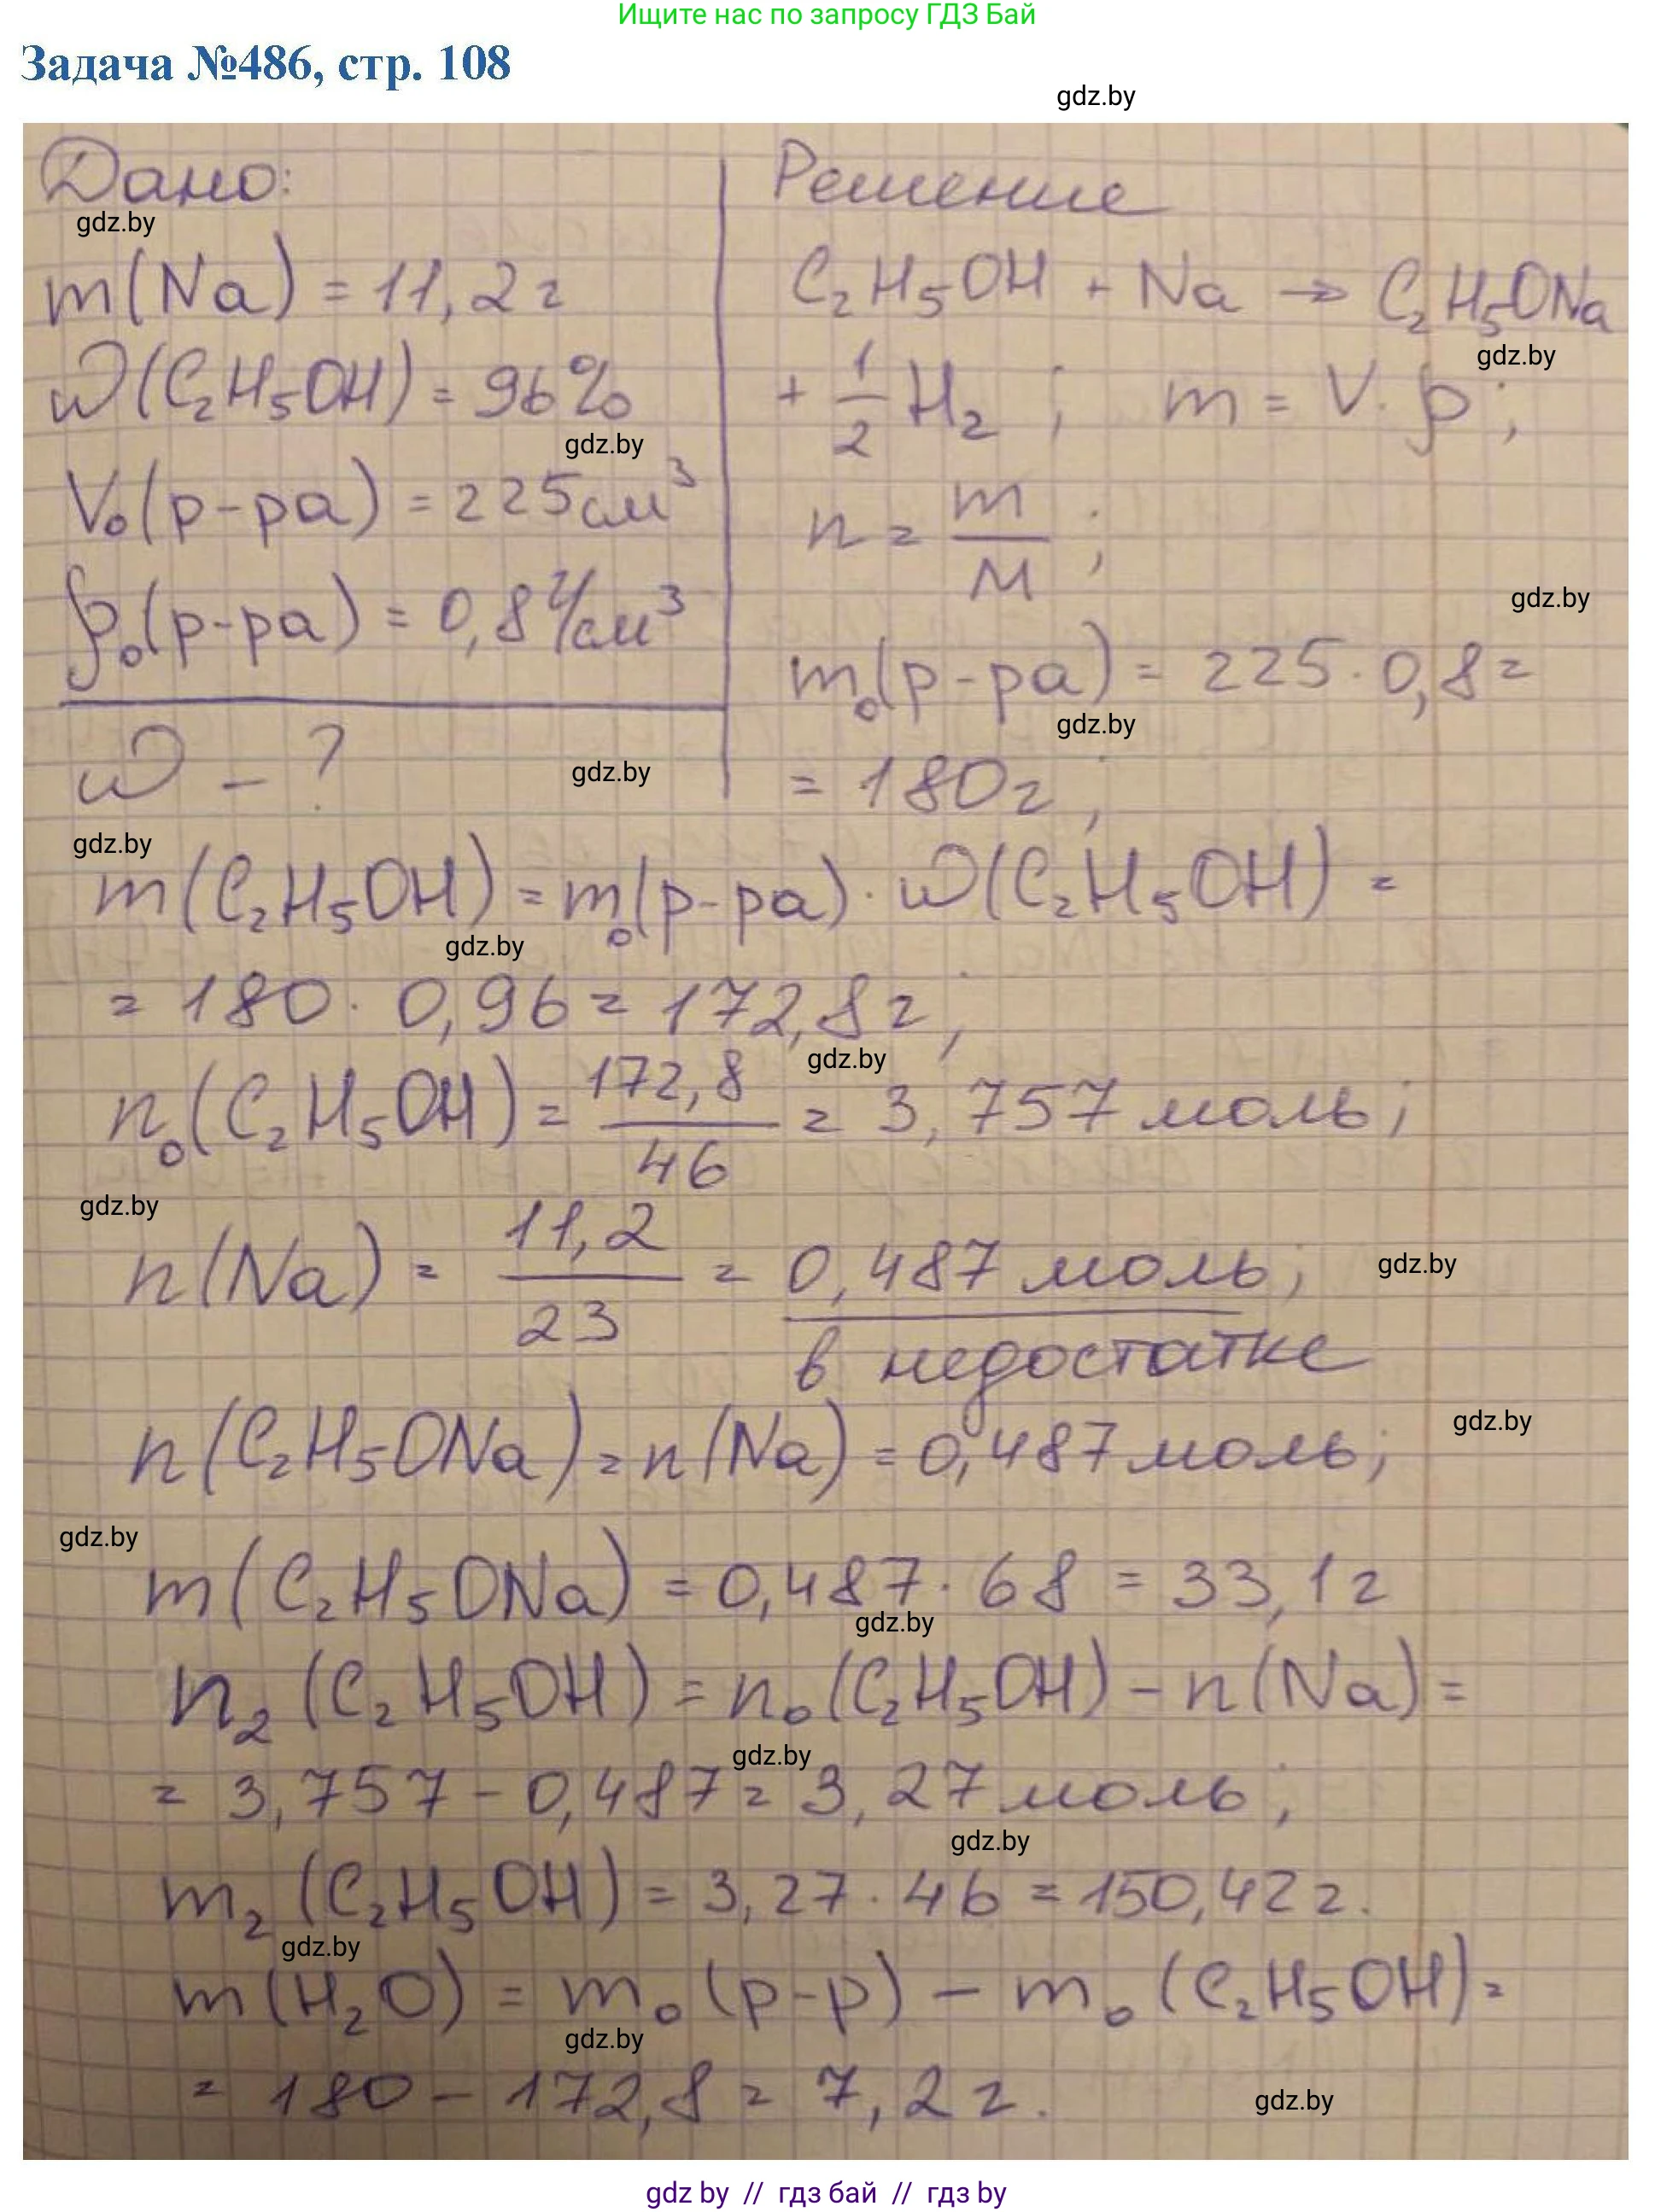 Ищите нас по запросу ГДЗ Бай
Задача №486, стр. 108
gdz.by
Дано:
gdz.by
m(Na) = 11,2 г
ω(C₂H₅OH) = 96%
gdz.by
V₀(р-ра) = 225 см³
ρ₀(р-ра) = 0,8 г/см³
ω - ?
gdz.by
Решение
C₂H₅OH + Na → C₂H₅ONa
gdz.by
+ 1/2 H₂ ; m = V · ρ ;
n = m/M ;
gdz.by
m₀(р-ра) = 225 · 0,8 =
gdz.by
= 180 г ;
gdz.by
m(C₂H₅OH) = m₀(р-ра) · ω(C₂H₅OH) =
gdz.by
= 180 · 0,96 = 172,8 г ;
gdz.by
n₀(C₂H₅OH) = 172,8/46 = 3,757 моль ;
gdz.by
n(Na) = 11,2/23 = 0,487 моль ;
gdz.by
в недостатке
gdz.by
n(C₂H₅ONa) = n(Na) = 0,487 моль ;
gdz.by
m(C₂H₅ONa) = 0,487 · 68 = 33,1 г
gdz.by
n₂(C₂H₅OH) = n₀(C₂H₅OH) - n(Na) =
gdz.by
= 3,757 - 0,487 = 3,27 моль ;
gdz.by
m₂(C₂H₅OH) = 3,27 · 46 = 150,42 г.
gdz.by
m(H₂O) = m₀(р-р) - m₀(C₂H₅OH) =
gdz.by
= 180 - 172,8 = 7,2 г.
gdz.by
gdz by // гдз бай // гдз by